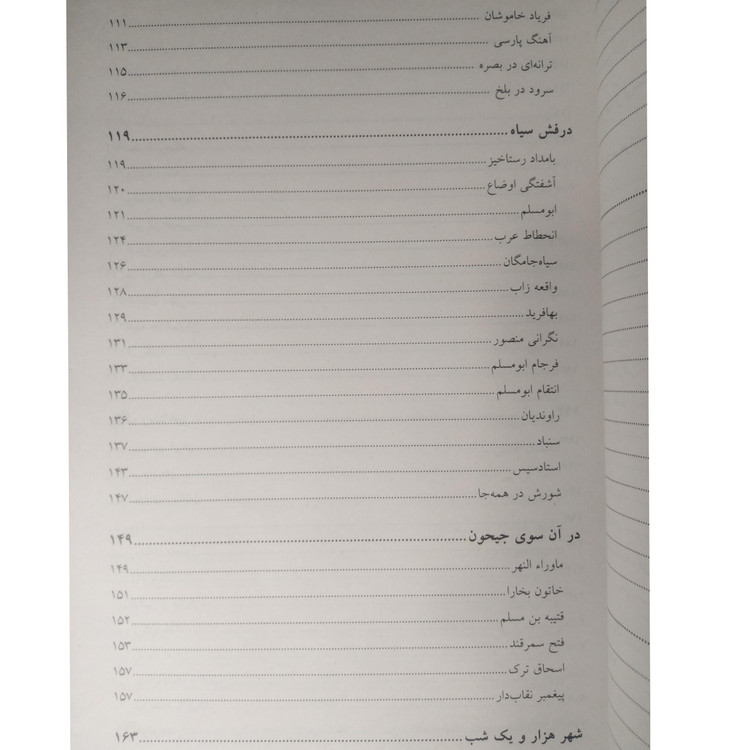 فریاد خاموشان ........ ۱۱۱
آهنگ پارسی ........ ۱۱۳
ترانه‌ای در بصره ........ ۱۱۵
سرود در بلخ ........ ۱۱۶
درفش سیاه ........ ۱۱۹
بامداد رستاخیز ........ ۱۱۹
آشفتگی اوضاع ........ ۱۲۰
ابومسلم ........ ۱۲۱
انحطاط عرب ........ ۱۲۴
سیاه‌جامگان ........ ۱۲۶
واقعه زاب ........ ۱۲۸
بهافرید ........ ۱۲۹
نگرانی منصور ........ ۱۳۱
فرجام ابومسلم ........ ۱۳۳
انتقام ابومسلم ........ ۱۳۵
راوندیان ........ ۱۳۶
سنباد ........ ۱۳۷
استادسیس ........ ۱۴۳
شورش در همه‌جا ........ ۱۴۷
در آن سوی جیحون ........ ۱۴۹
ماوراء النهر ........ ۱۴۹
خاتون بخارا ........ ۱۵۱
قتیبه بن مسلم ........ ۱۵۲
فتح سمرقند ........ ۱۵۳
اسحاق ترک ........ ۱۵۷
پیغمبر نقاب‌دار ........ ۱۵۷
شهر هزار و یک شب ........ ۱۶۳